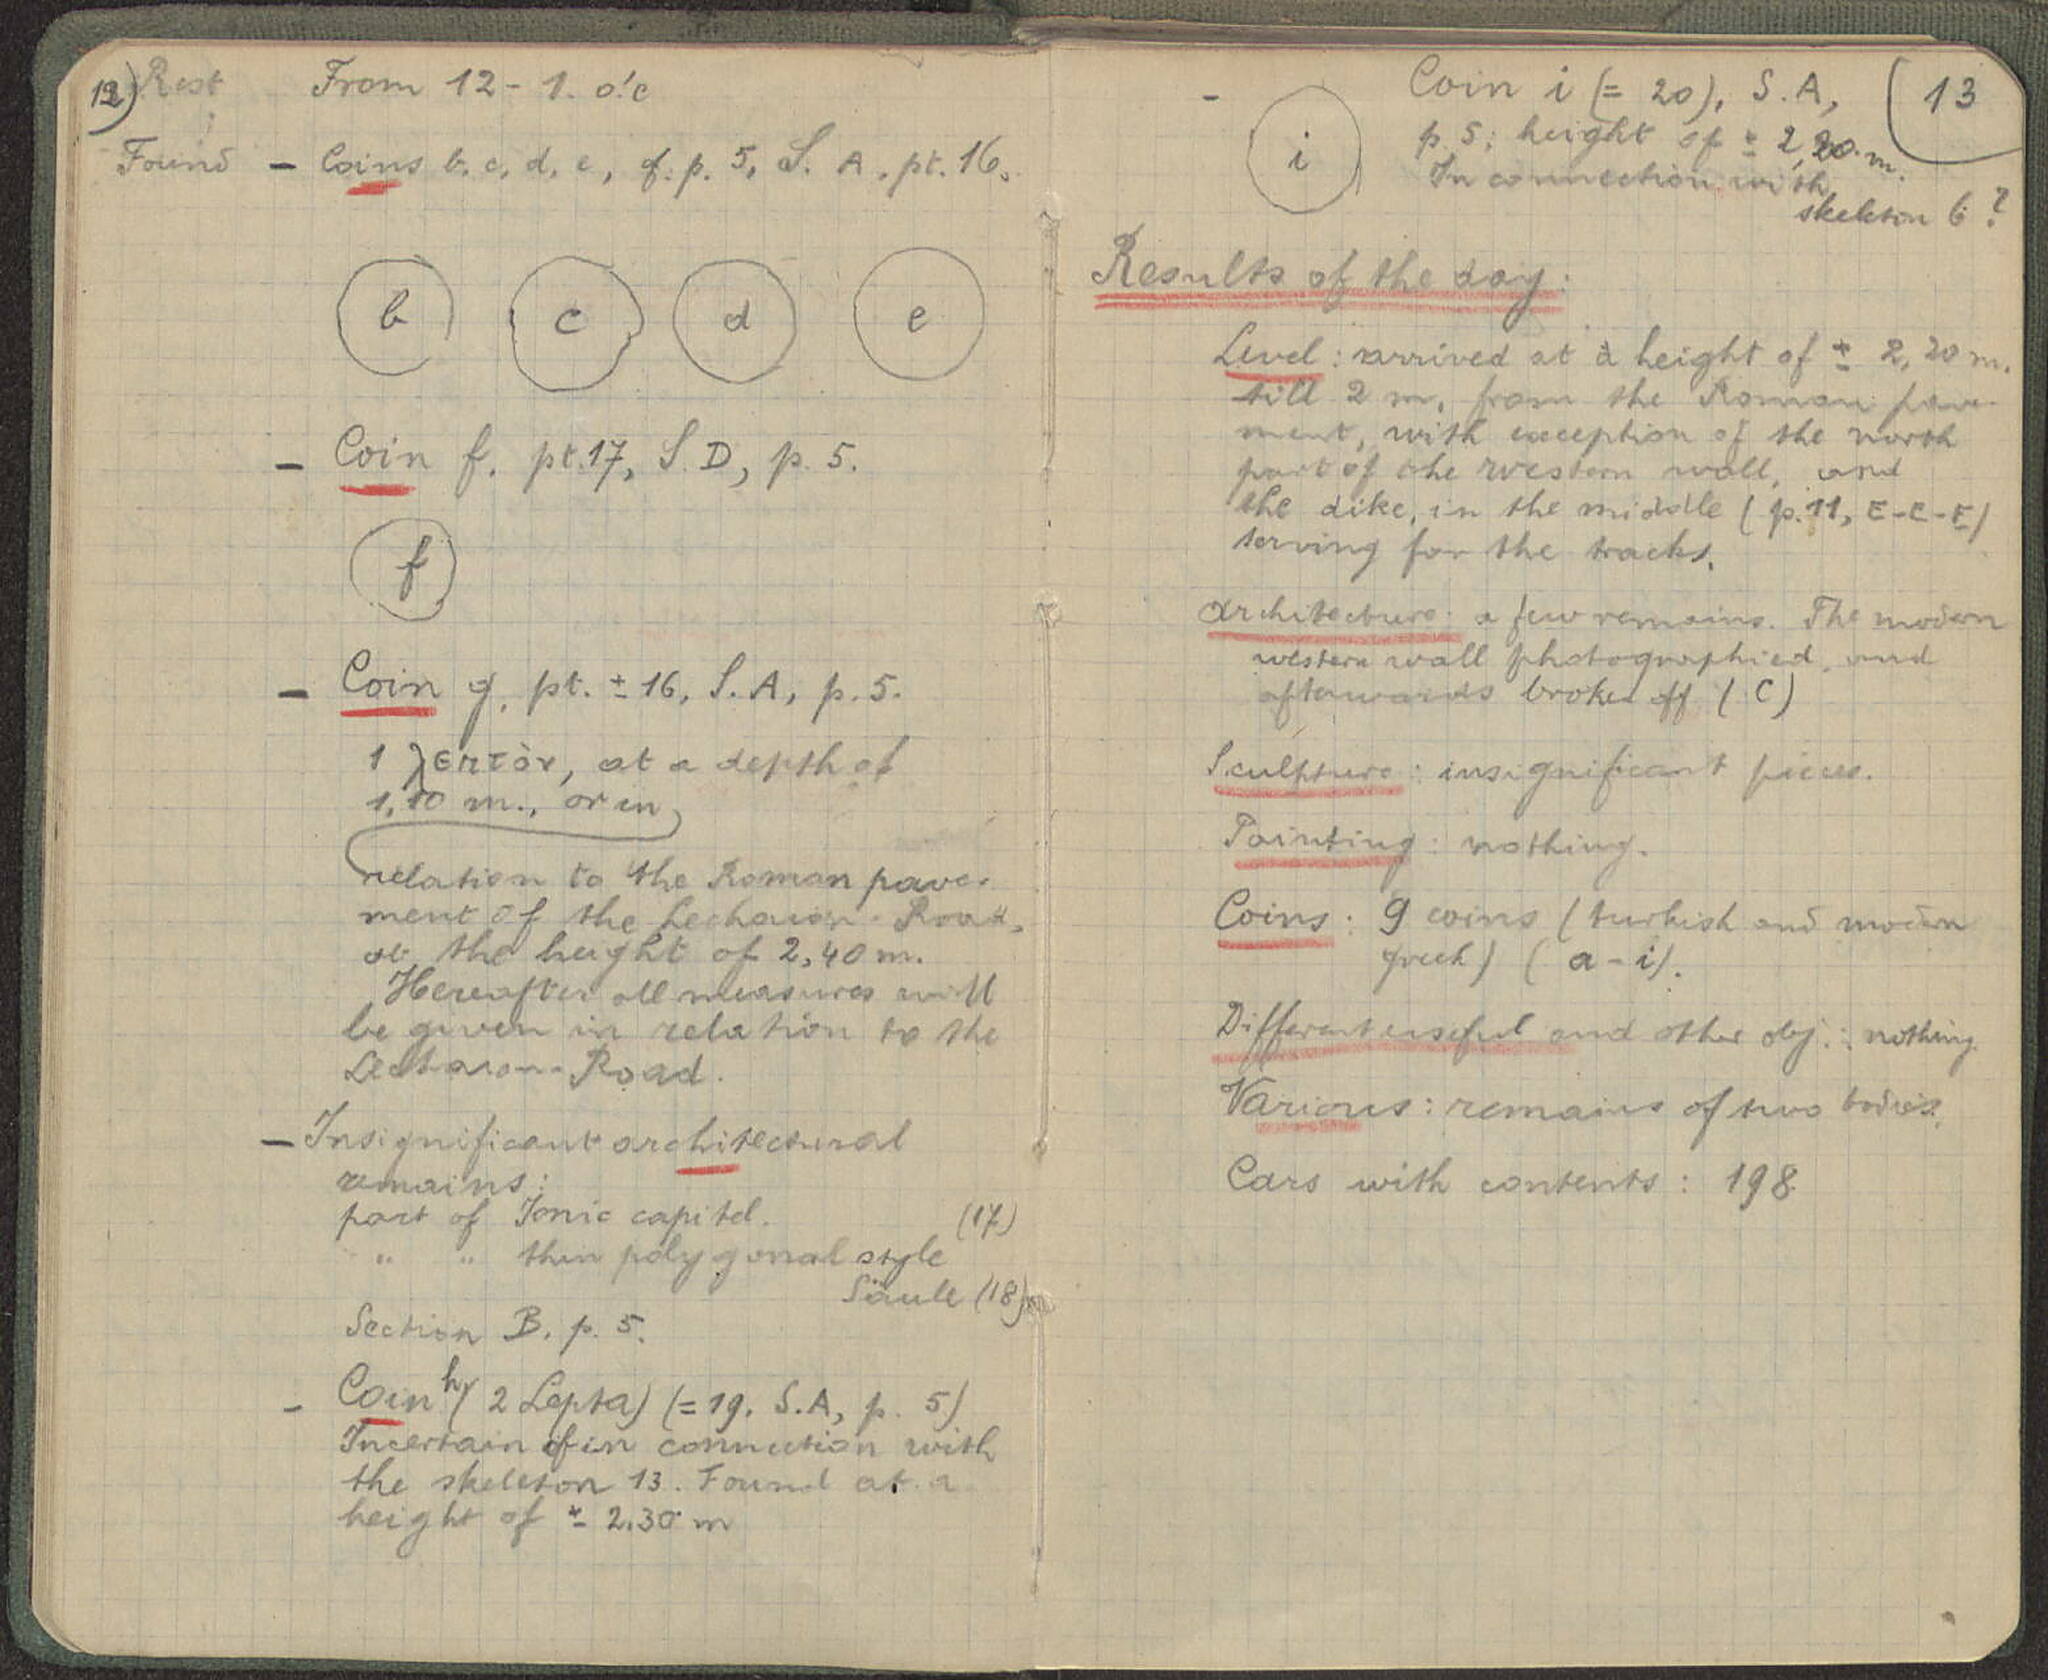 12) Rest From 12 - 1. o'c
Found - Coins b, c, d, e, cf. p. 5, S. A, pt. 16.
b c d e
- Coin f. pt. 17, S. D, p. 5.
f
- Coin g, pt. ± 16, S. A, p. 5.
1 λεπτὸν, at a depth of
1,10 m., or in
relation to the Roman pave-
ment of the Lechaion-Road,
at the height of 2,40 m.
Hereafter all measures will
be given in relation to the
Lechaion-Road.
- Insignificant architectural
remains:
part of Ionic capitel. (17)
" " thin polygonal style
Säule (18)
Section B. p. 5.
- Coin h (2 Lepta) (= 19. S. A, p. 5)
Incertain if in connection with
the skeleton 13. Found at a
height of ± 2.30 m
13
- i Coin i (= 20), S. A,
p. 5; height of ± 2,20 m.
In connection with
skeleton 6 ?
Results of the day:
Level: arrived at a height of ± 2,20 m.
till 2 m. from the Roman pave-
ment, with exception of the north
part of the western wall, and
the dike, in the middle (p. 11, E-E-E)
serving for the tracks.
Architecture: a few remains. The modern
western wall photographied, and
afterwards broken off (C)
Sculpture: insignificant pieces.
Painting: nothing.
Coins: 9 coins (turkish and modern
greek) (a - i).
Different useful and other obj.: nothing.
Various: remains of two bodies.
Cars with contents: 198